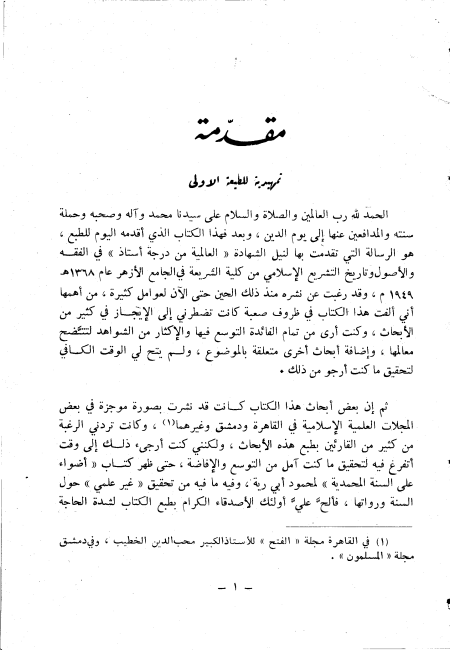 مقدّمة
تمهيدية للطبعة الاولى
الحمد لله رب العالمين والصلاة والسلام على سيدنا محمد وآله وصحبه وحملة
سنته والمدافعين عنها إلى يوم الدين ، وبعد فهذا الكتاب الذي أقدمه اليوم للطبع ،
هو الرسالة التي تقدمت بها لنيل الشهادة « العالمية من درجة أستاذ » في الفقه
والأصول وتاريخ التشريع الإسلامي من كلية الشريعة في الجامع الأزهر عام ١٣٦٨هـ
١٩٤٩ م ، وقد رغبت عن نشره منذ ذلك الحين حتى الآن لعوامل كثيرة ، من أهمها
أني ألفت هذا الكتاب في ظروف صعبة كانت تضطرني إلى الإيجاز في كثير من
الأبحاث ، وكنت أرى من تمام الفائدة التوسع فيها والإكثار من الشواهد لتتضح
معالمها ، وإضافة أبحاث أخرى متعلقة بالموضوع ، ولم يتح لي الوقت الكافي
لتحقيق ما كنت أرجو من ذلك .
ثم إن بعض أبحاث هذا الكتاب كانت قد نشرت بصورة موجزة في بعض
المجلات العلمية الإسلامية في القاهرة ودمشق وغيرهما(١) ، وكانت تردني الرغبة
من كثير من القارئين بطبع هذه الأبحاث ، ولكنني كنت أرجىء ذلك إلى وقت
أتفرغ فيه لتحقيق ما كنت آمل من التوسع والإفاضة ، حتى ظهر كتاب « أضواء
على السنة المحمدية » لمحمود أبي رية ، وفيه ما فيه من تحقيق « غير علمي » حول
السنة ورواتها ، فألحَّ عليَّ أولئك الأصدقاء الكرام بطبع الكتاب لشدة الحاجة
(١) في القاهرة مجلة « الفتح » للأستاذ الكبير محب الدين الخطيب ، وفي دمشق
مجلة « المسلمون » .
— ١ —